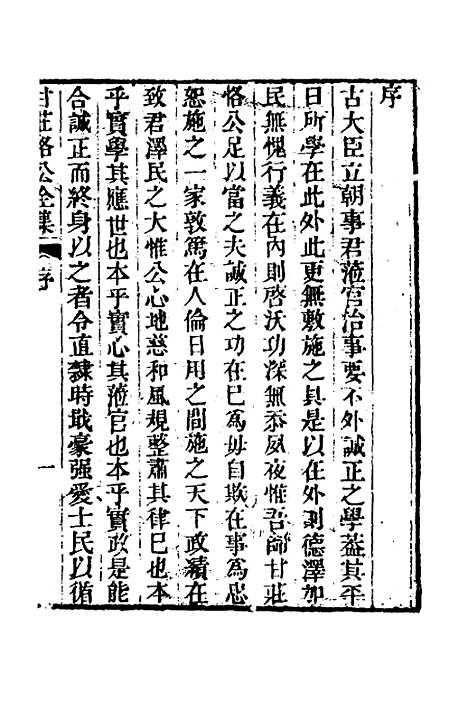 序
古大臣立朝事君蒞官治事要不外誠正之學葢其平
日所學在此外此更無敷施之具是以在外則德澤加
民無愧行義在內則啓沃功深無忝夙夜惟吾師甘莊
恪公足以當之夫誠正之功在已爲毋自欺在事爲忠
恕施之一家敦篤在人倫日用之間施之天下政績在
致君澤民之大惟公心地慈和風規整肅其律已也本
乎實學其應世也本乎實心其蒞官也本乎實政是能
合誠正而終身以之者令直隸時戢豪强愛士民以循
甘莊恪公全集 序 一